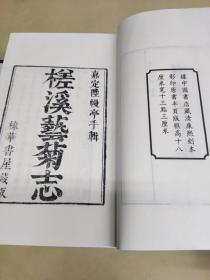 據中國書店藏清康熙刻本
影印原書半頁版框高十八
厘米寬十三點三厘米
嘉定陸幔亭手輯
槎溪藝菊志
棣華書屋藏版